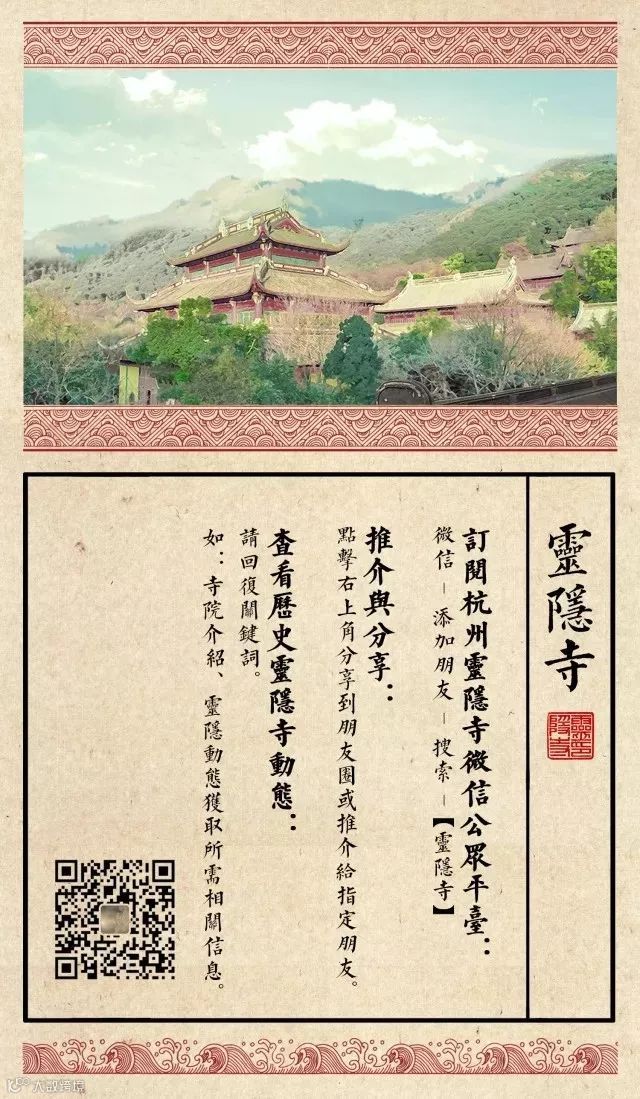 靈隱寺
靈隱寺
訂閱杭州靈隱寺微信公眾平臺：
微信－添加朋友－搜索－【靈隱寺】
推介與分享：
點擊右上角分享到朋友圈或推介給指定朋友。
查看歷史靈隱寺動態：
請回復關鍵詞。
如：寺院介紹、靈隱動態獲取所需相關信息。
大数跨境